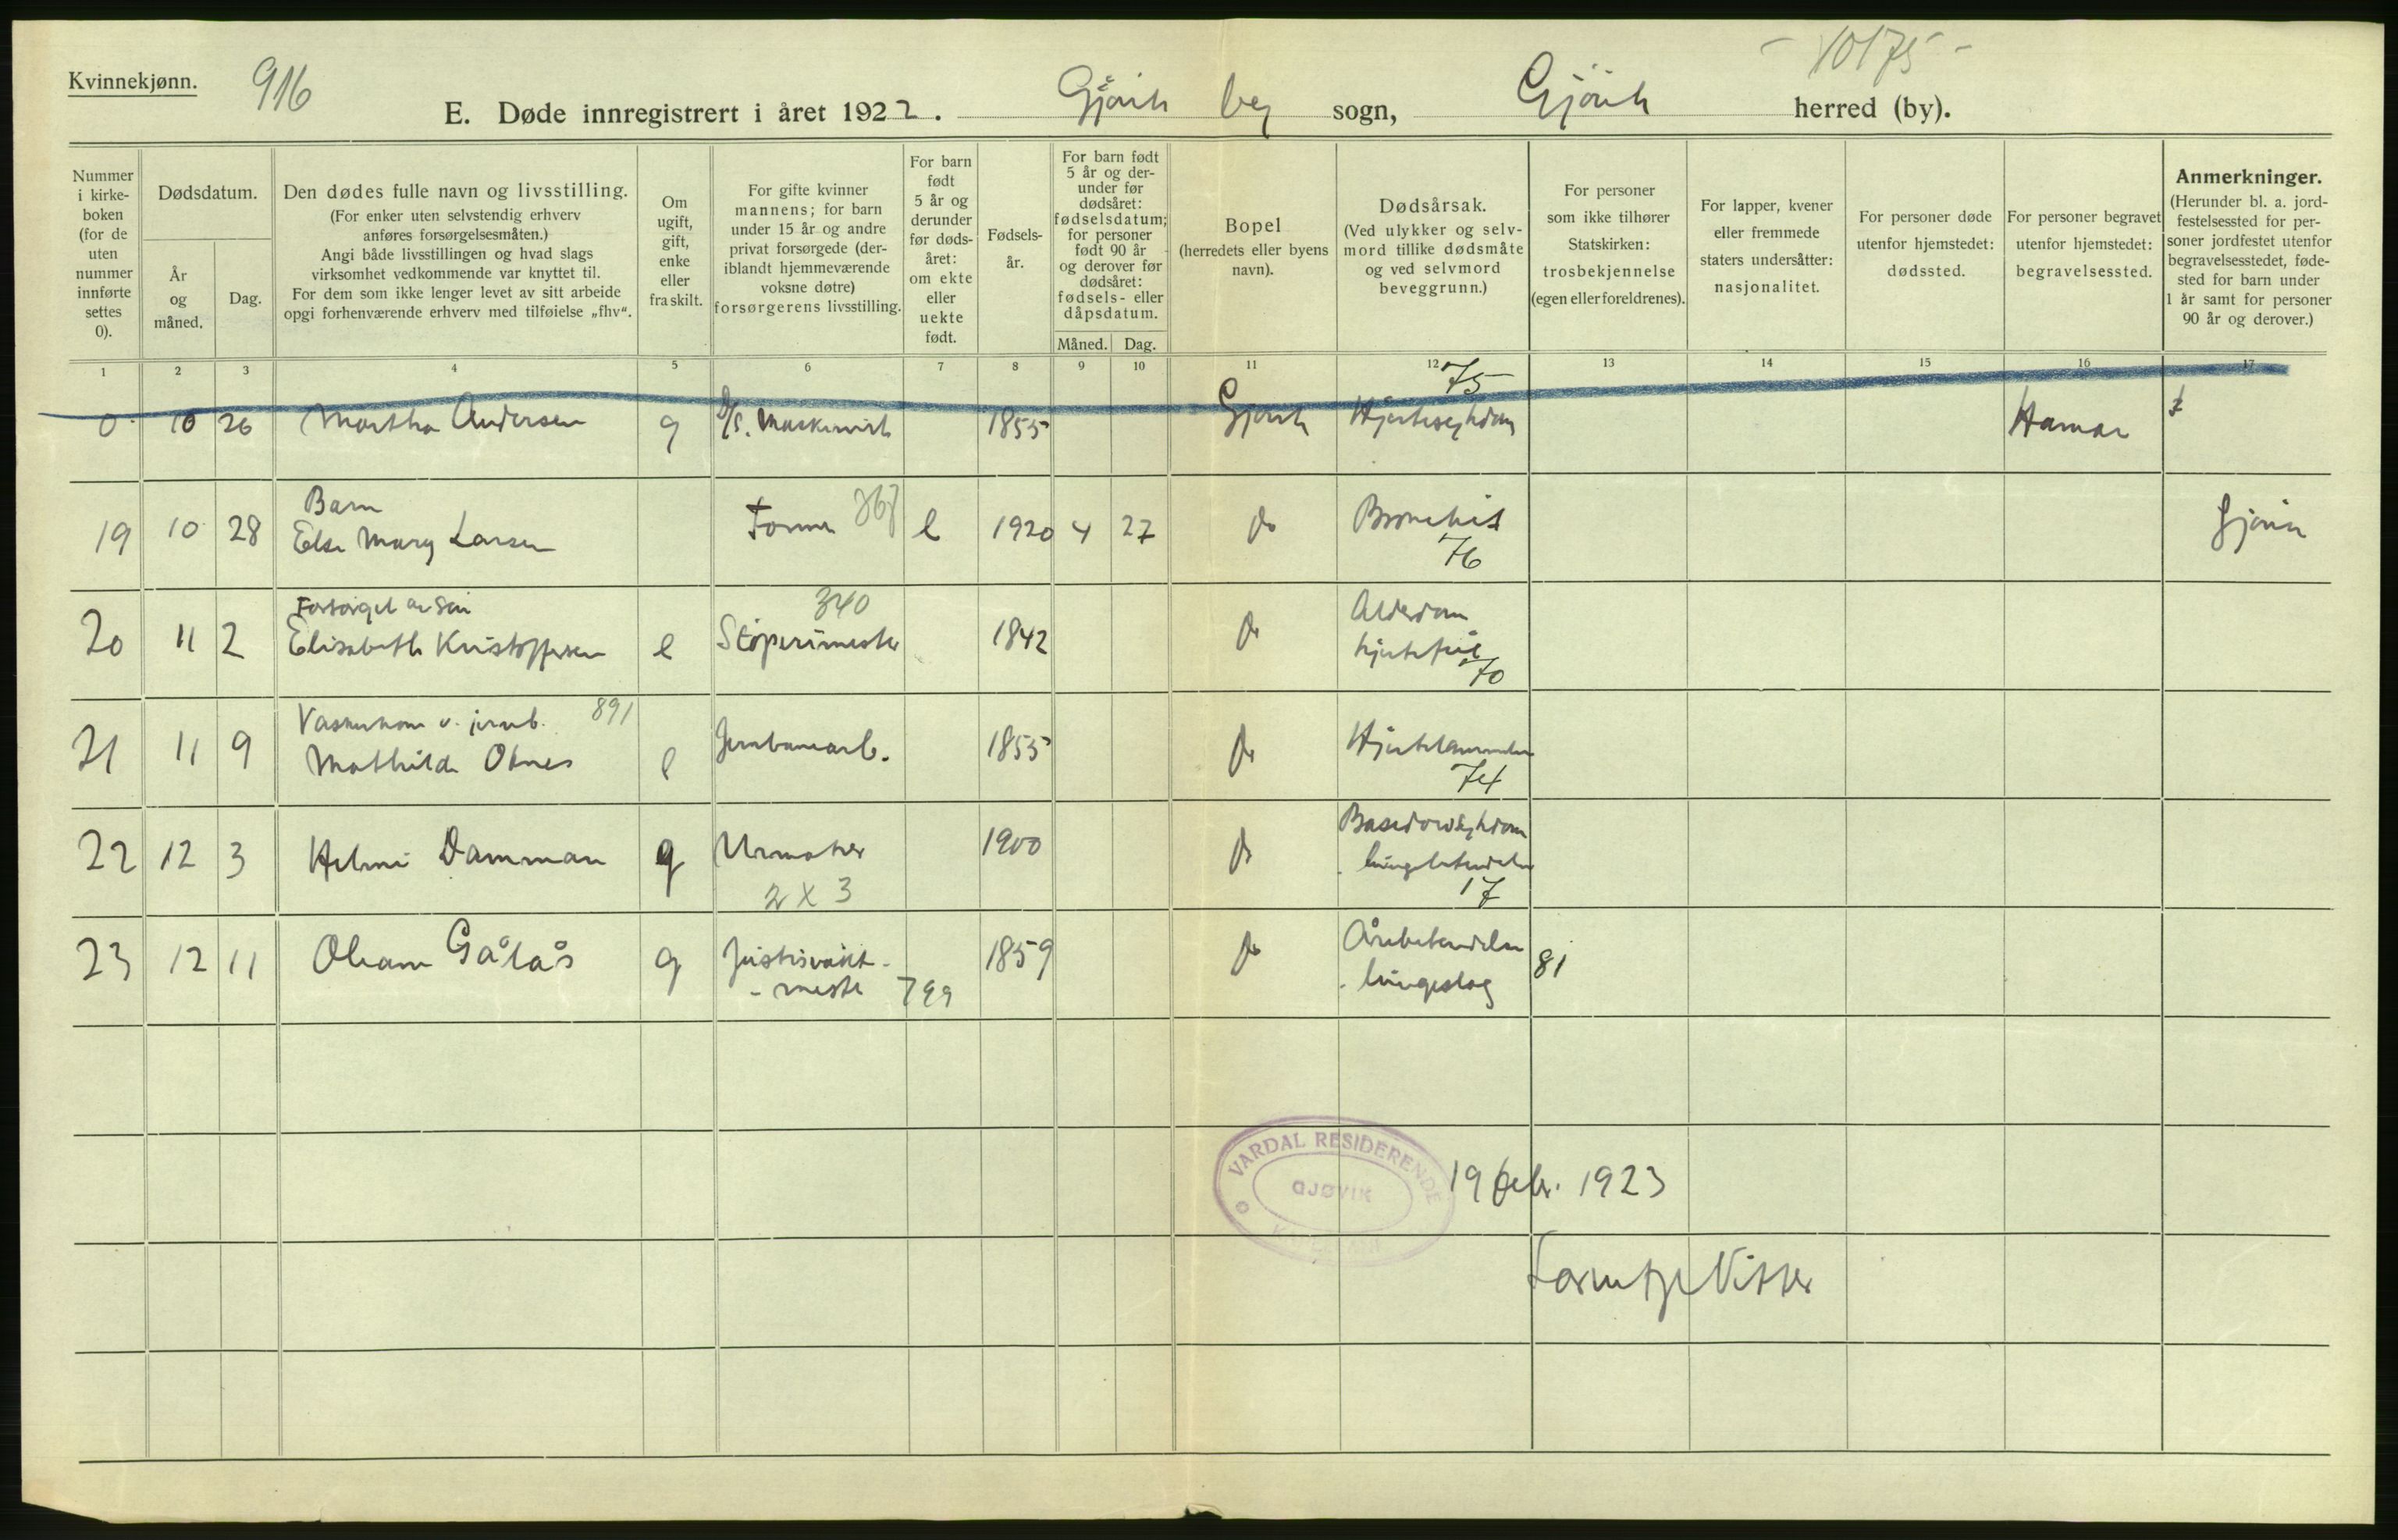 Kvinnekjønn.
916
- 10175 -
E. Døde innregistrert i året 1922. Gjøvik by sogn, Gjøvik herred (by).
Nummer i kirkeboken (for de uten nummer innførte settes 0).
Dødsdatum.
År og måned.
Dag.
Den dødes fulle navn og livsstilling.
(For enker uten selvstendig erhverv
anføres forsørgelsesmåten.)
Angi både livsstillingen og hvad slags
virksomhet vedkommende var knyttet til.
For dem som ikke lenger levet av sitt arbeide
opgi forhenværende erhverv med tilføielse „fhv“.
Om ugift, gift, enke eller fraskilt.
For gifte kvinner
mannens; for barn
under 15 år og andre
privat forsørgede (der-
iblandt hjemmeværende
voksne døtre)
forsørgerens livsstilling.
For barn født 5 år og derunder før dødsåret: om ekte eller uekte født.
Fødsels-
år.
For barn født
5 år og der-
under før
dødsåret:
fødselsdatum;
for personer
født 90 år
og derover før
dødsåret:
fødsels- eller
dåpsdatum.
Måned. Dag.
Bopel
(herredets eller byens
navn).
Dødsårsak.
(Ved ulykker og selv-
mord tillike dødsmåte
og ved selvmord
beveggrunn.)
For personer
som ikke tilhører
Statskirken:
trosbekjennelse
(egen eller foreldrenes).
For lapper, kvener
eller fremmede
staters undersåtter:
nasjonalitet.
For personer døde
utenfor hjemstedet:
dødssted.
For personer begravet
utenfor hjemstedet:
begravelsessted.
Anmerkninger.
(Herunder bl. a. jord-
festelsessted for per-
soner jordfestet utenfor
begravelsesstedet, føde-
sted for barn under
1 år samt for personer
90 år og derover.)
1 2 3 4 5 6 7 8 9 10 11 12 13 14 15 16 17
75
0 10 26 Martha Andersen g 1855 Gjøvik Hjertesykdom Hamar
Barn
19 10 28 Else Mary Larsen 367 e 1920 4 27 do Bronchit Gjøvik
76
Forsørget av søn 340 Alderdom
20 11 2 Elisabeth Kristoffersen e Støperimester 1842 do hjertefeil
70
Vaskekone v. jernb. 891
21 11 9 Mathilde Olsnes e Jernbanearb. 1855 do Hjertelammelse
74
Basedowsykdom
22 12 3 Helmi Damman g Urmaker 1900 do lungebetendelse
2 X 3 17
23 12 11 Oleane Gålås g Justisvakt- 1859 do Årebetendelse 81
- mester 799 lungeslag
VARDAL RESIDERENDE
GJØVIK
19 febr. 1923